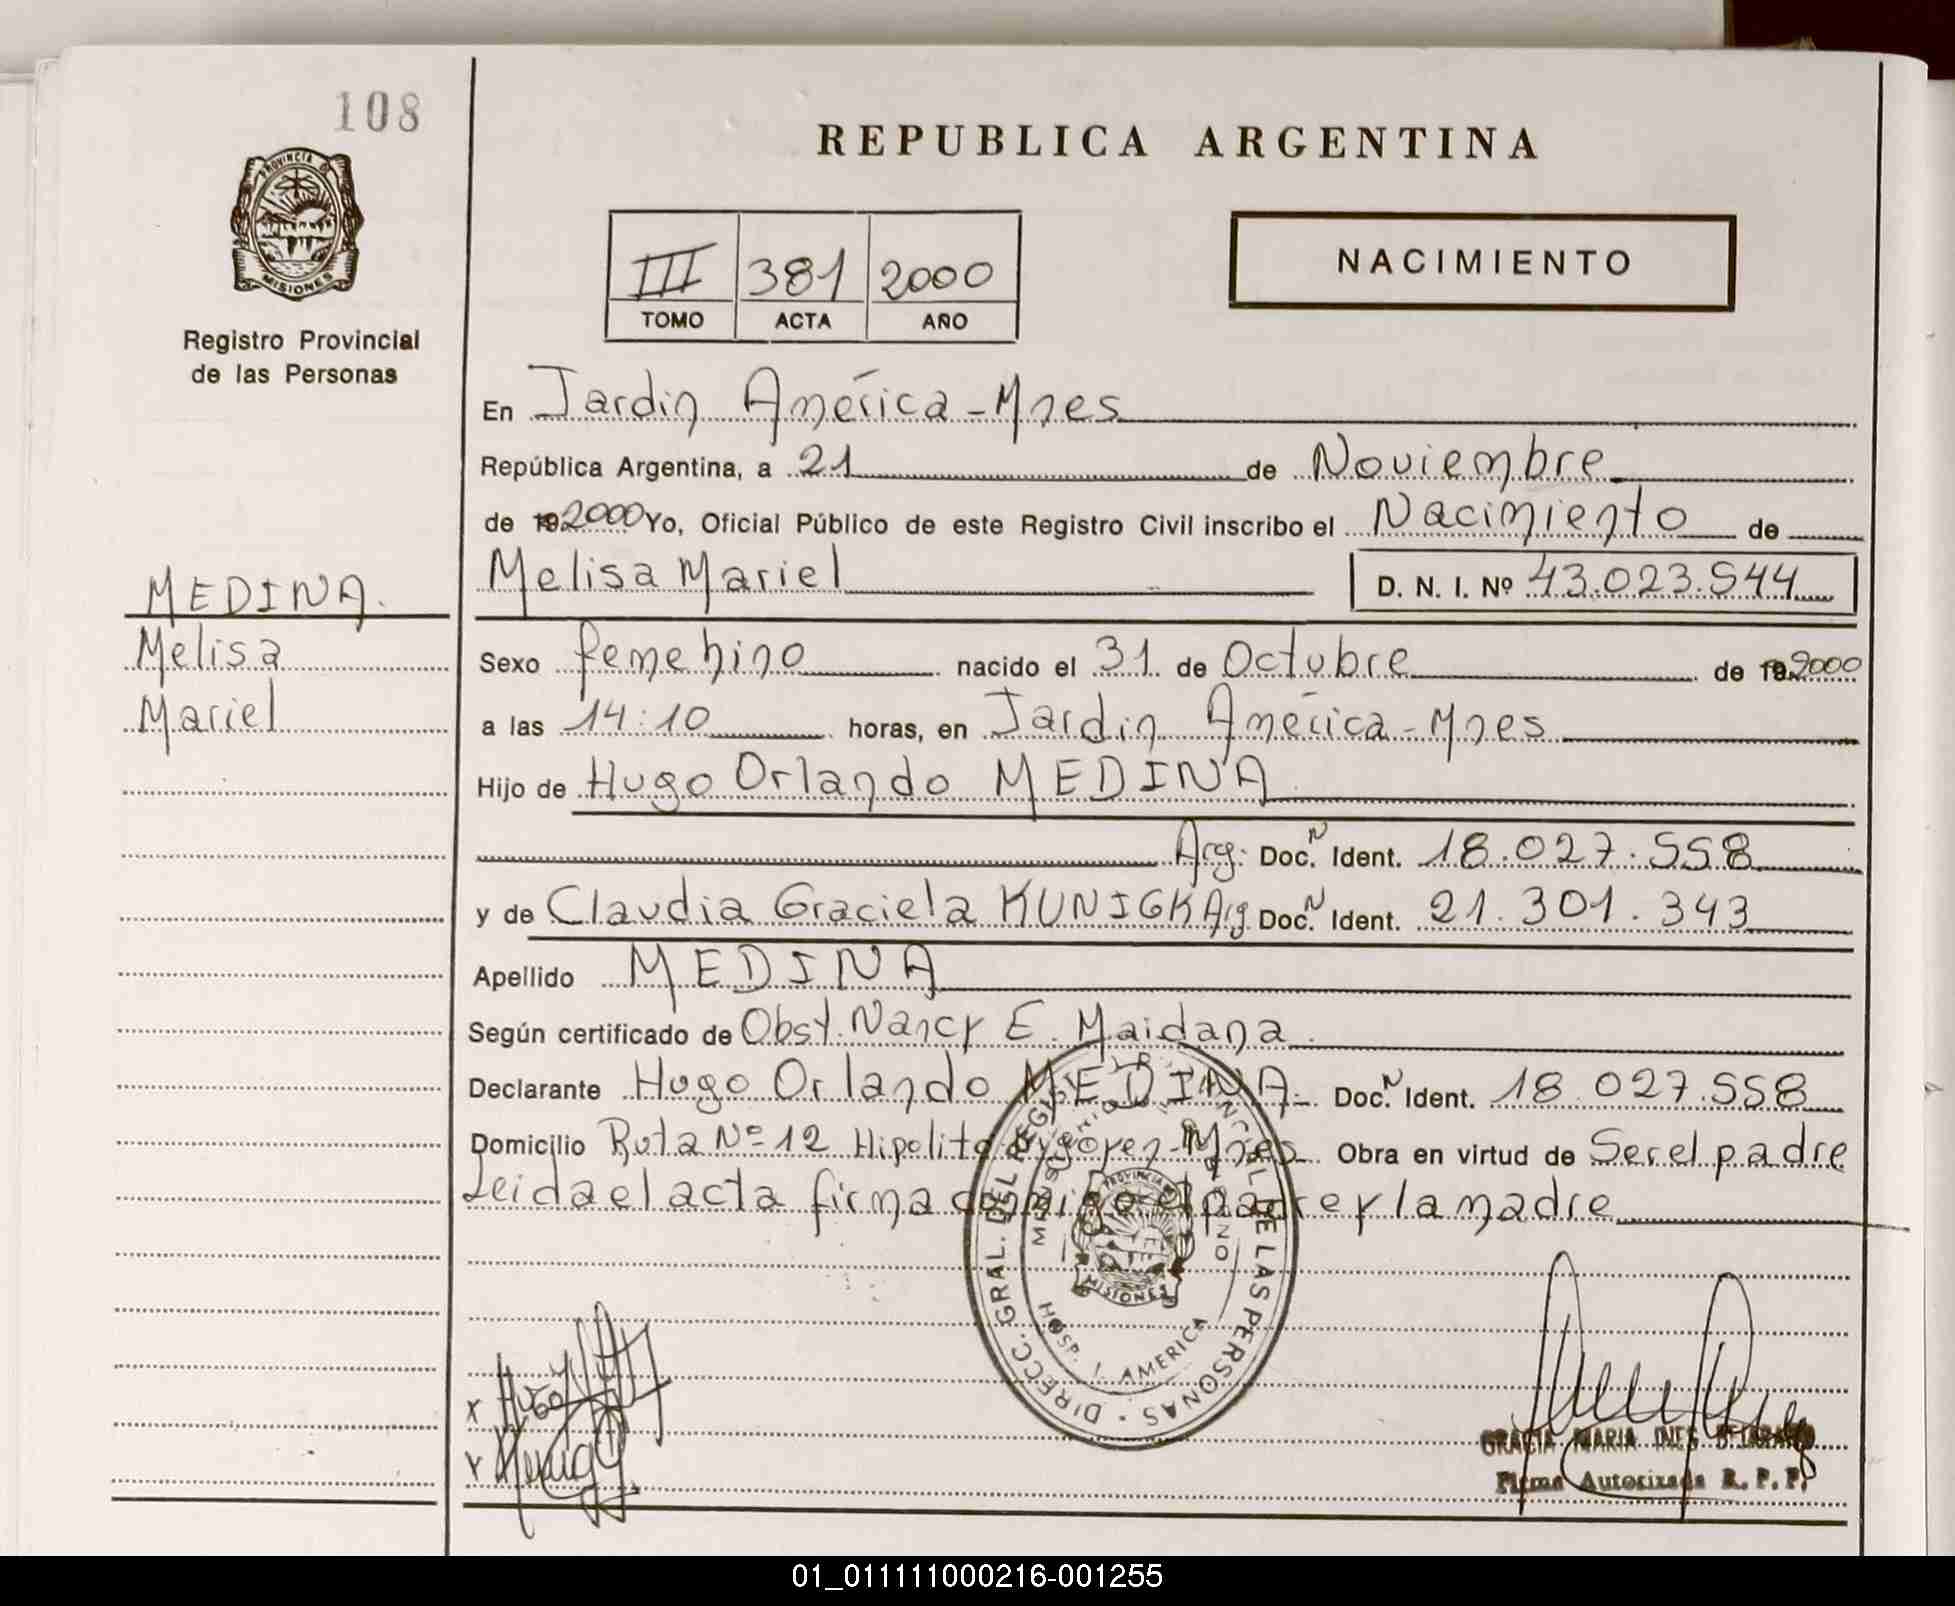 108
REPUBLICA ARGENTINA
PROVINCIA DE
MISIONES
Registro Provincial
de las Personas
III 381 2000
TOMO ACTA AÑO
NACIMIENTO
En Jardin América - Mnes
República Argentina, a 21 de Noviembre
de 19 2000 Yo, Oficial Público de este Registro Civil inscribo el Nacimiento de
Melisa Mariel D. N. I. Nº 43.023.544
MEDINA.
Melisa
Mariel
Sexo femenino nacido el 31 de Octubre de 19 2000
a las 14:10 horas, en Jardin América - Mnes
Hijo de Hugo Orlando MEDINA
Arg. Doc. N Ident. 18.027.558
y de Claudia Graciela KUNIGK Arg Doc. N Ident. 21.301.343
Apellido MEDINA
Según certificado de Obst. Nancy E. Maidana
Declarante Hugo Orlando MEDINA. Doc. N Ident. 18 027.558
Domicilio Ruta Nº 12 Hipolito Yrigoyen - Mnes Obra en virtud de Ser el padre
Leida el acta firma conmigo el padre y la madre
DIRECC. GRAL. DEL REGISTRO PROVINCIAL DE LAS PERSONAS
MISIONES
HOSP. J. AMERICA
X Hugo
GRACIA MARIA INES
Firma Autorizada R. P. P.
01_011111000216-001255